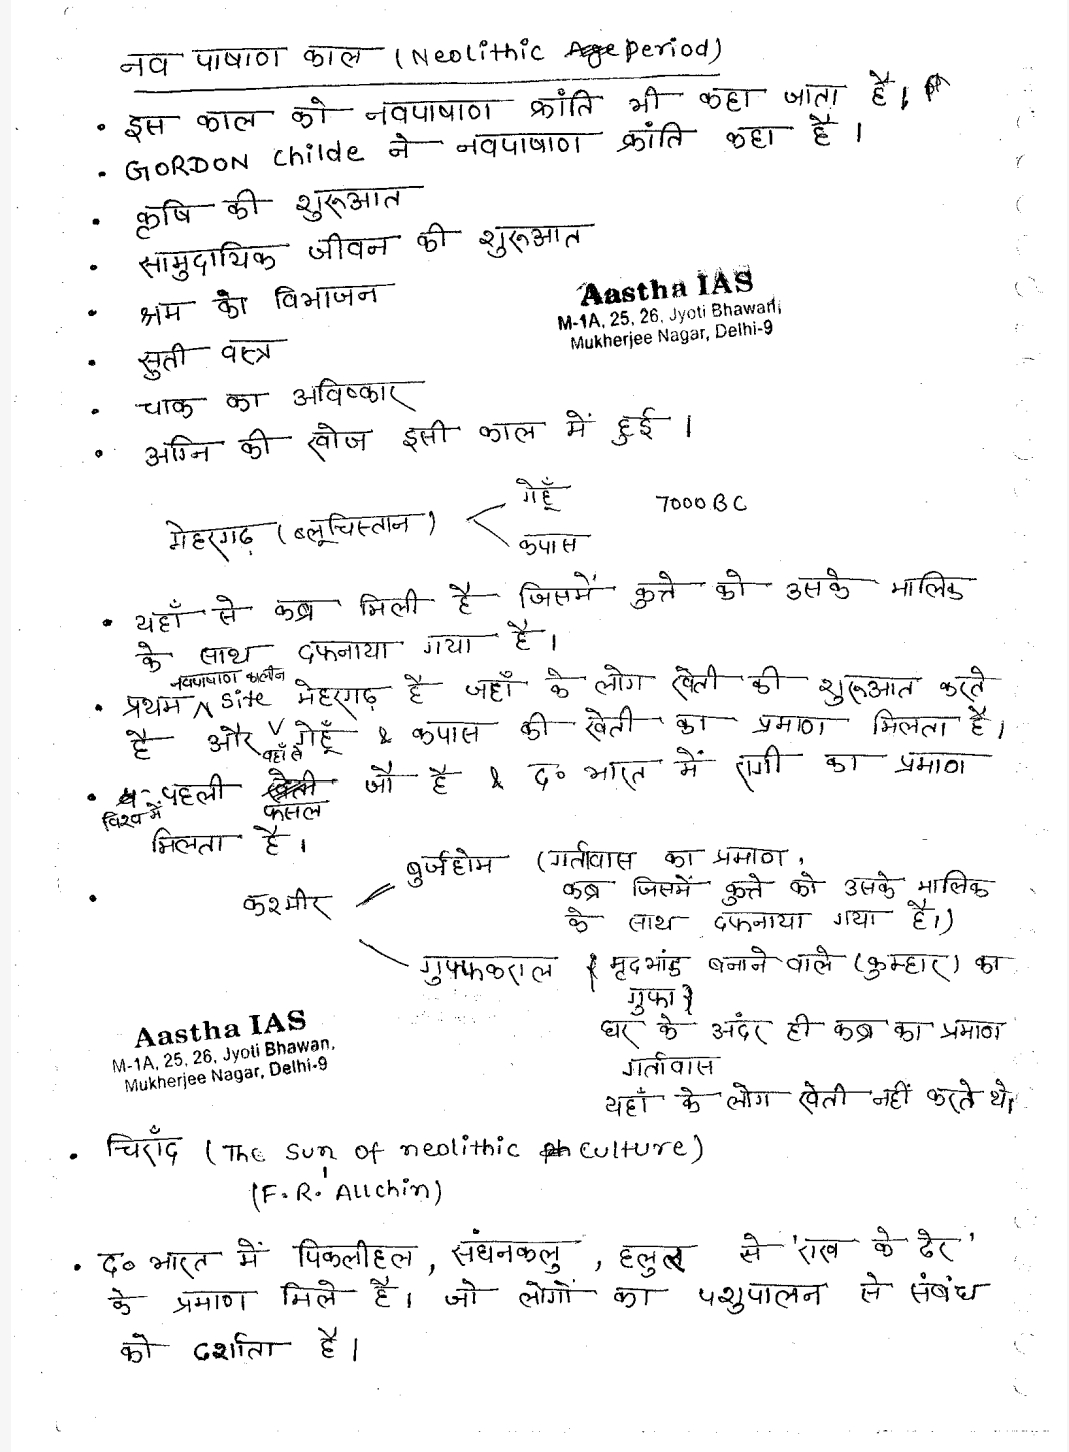 नव पाषाण काल (Neolithic Period)
• इस काल को नवपाषाण क्रांति भी कहा जाता है।
• GORDON Childe ने नवपाषाण क्रांति कहा है।
• कृषि की शुरूआत
• सामुदायिक जीवन की शुरूआत
• श्रम का विभाजन
Aastha IAS
M-1A, 25, 26, Jyoti Bhawan,
Mukherjee Nagar, Delhi-9
• सुती वस्त्र
• चाक का अविष्कार
• अग्नि की खोज इसी काल में हुई।
गेहूँ 7000 BC
मेहरगढ़ (ब्लूचिस्तान)
कपास
• यहाँ से कब्र मिली है जिसमें कुत्ते को उसके मालिक
के साथ दफनाया गया है।
नवपाषाण कालीन
• प्रथम Site मेहरगढ़ है जहाँ के लोग खेती की शुरूआत करते
है और गेहूँ & कपास की खेती का प्रमाण मिलता है।
वहाँ से
• पहली जौ है & द० भारत में रागी का प्रमाण
विश्व में फसल
मिलता है।
बुर्जहोम (गर्तावास का प्रमाण,
• कश्मीर कब्र जिसमें कुत्ते को उसके मालिक
के साथ दफनाया गया है।)
गुफ्फकराल { मृदभांड बनाने वाले (कुम्हार) का
गुफा }
घर के अंदर ही कब्र का प्रमाण
Aastha IAS
M-1A, 25, 26, Jyoti Bhawan,
Mukherjee Nagar, Delhi-9
गर्तावास
यहाँ के लोग खेती नहीं करते थे।
• चिराँद (The Sun of neolithic culture)
(F.R. Allchin)
• द० भारत में पिकलीहल, संघनकलु, हलुर से 'राख के ढेर'
के प्रमाण मिले है। जो लोगों का पशुपालन से संबंध
को दर्शाता है।